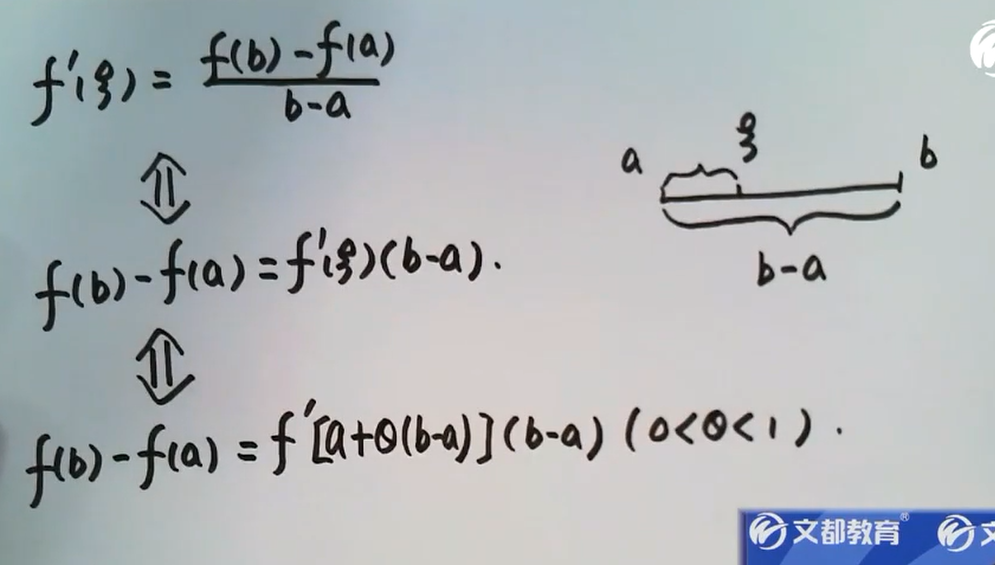 f'(ξ) = f(b)-f(a) / b-a
⇕
f(b)-f(a)=f'(ξ)(b-a).
⇕
f(b)-f(a)=f'[a+θ(b-a)](b-a) (0<θ<1).
a ξ b
b-a
文都教育® 文